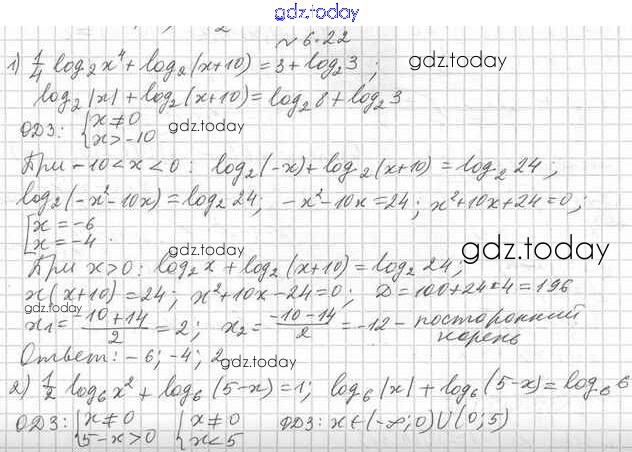 gdz.today
№ 6.22
1) 1/4 log₂x⁴ + log₂(x+10) = 3 + log₂3 ; gdz.today
log₂|x| + log₂(x+10) = log₂8 + log₂3
ОДЗ: { x ≠ 0 gdz.today
x > -10
При -10 < x < 0 : log₂(-x) + log₂(x+10) = log₂24 ;
log₂(-x²-10x) = log₂24 ; -x²-10x = 24 ; x²+10x+24 = 0 ;
[ x = -6
x = -4 . gdz.today gdz.today
При x > 0 : log₂x + log₂(x+10) = log₂24 ;
x(x+10) = 24 ; x²+10x-24 = 0 ; D = 100+24*4 = 196
gdz.today
x₁ = (-10+14)/2 = 2 ; x₂ = (-10-14)/2 = -12 - посторонний
корень
Ответ: -6; -4; 2 gdz.today
2) 1/2 log₆x² + log₆(5-x) = 1 ; log₆|x| + log₆(5-x) = log₆6
ОДЗ: { x ≠ 0 { x ≠ 0 ОДЗ: x ∈ (-∞; 0) ∪ (0; 5)
5-x > 0 x < 5